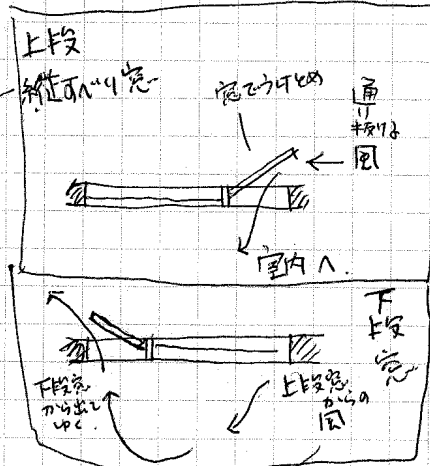 上段
縦すべり窓
窓でうけとめ
通り抜ける風
室内へ.
下段窓
下段窓
から出て
ゆく.
上段窓
からの
風